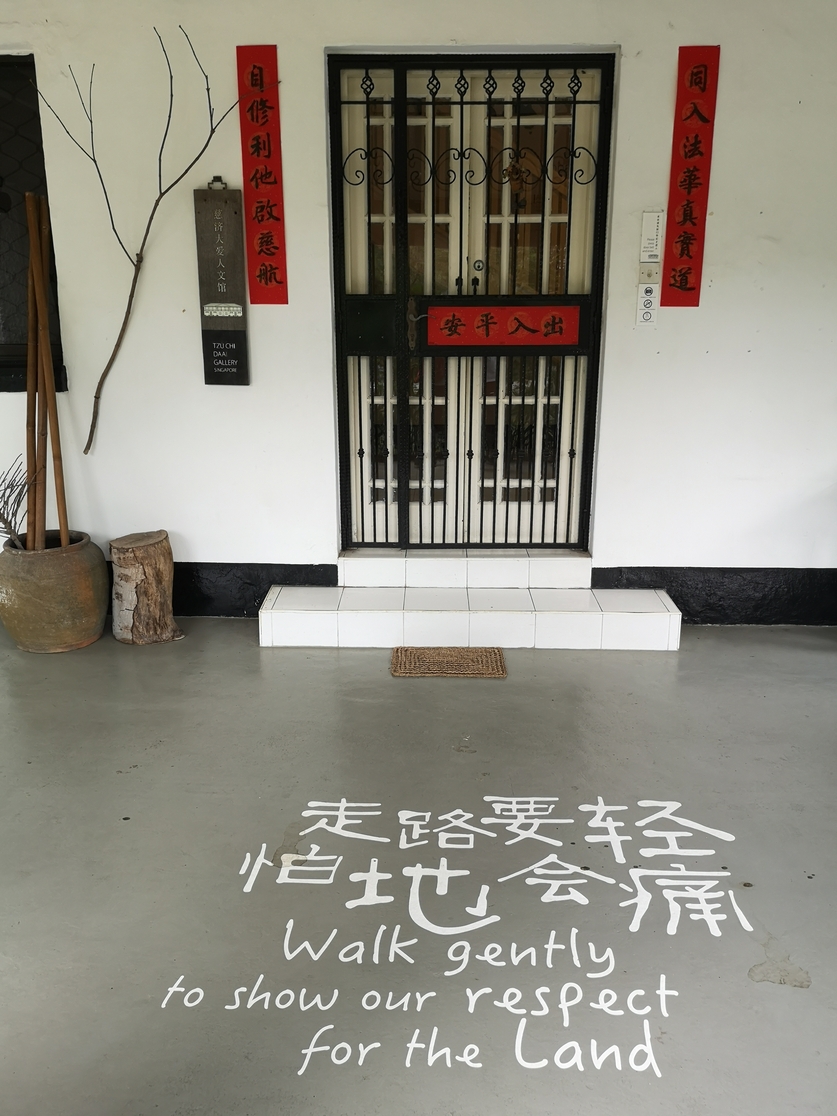 同入法華真實道
自修利他啟慈航
安平入出
慈济人爱人文馆
TZU CHI
DA AI
GALLERY
SINGAPORE
走路要轻
怕地会痛
Walk gently
to show our respect
for the Land